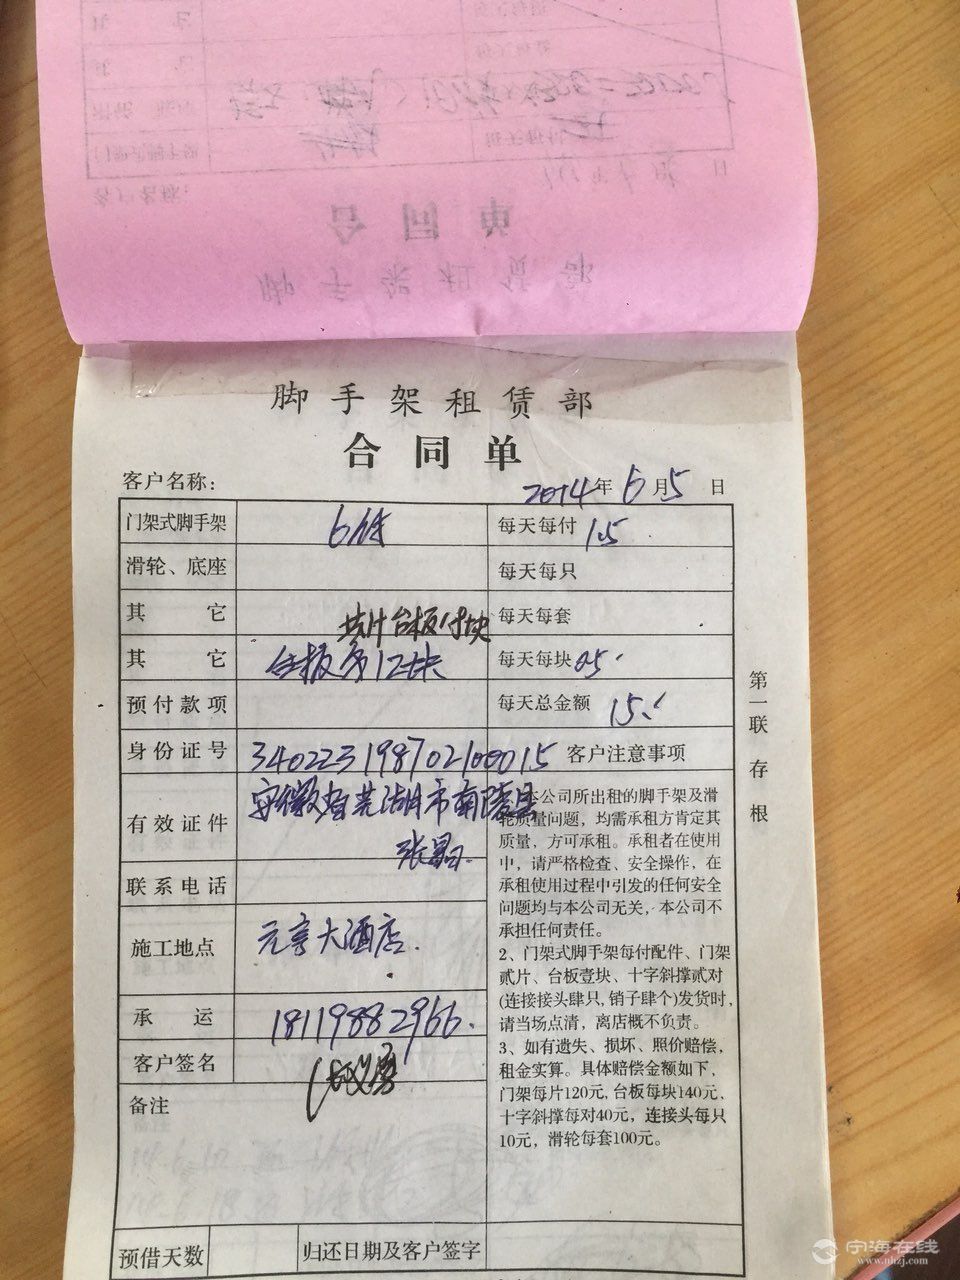 脚手架租赁部
合同单
客户名称:
2014年6月5日
门架式脚手架 6付 每天每付 1.5
滑轮、底座 每天每只
其它 共计台板 块 每天每套
其它 台板 12块 每天每块 0.5
预付款项 每天总金额 15.
身份证号 340223198702100015 客户注意事项
有效证件 安徽省芜湖市南陵县
张
联系电话
施工地点 元亨大酒店.
承运 18119882966.
客户签名
备注
本公司所出租的脚手架及滑
轮质量问题，均需承租方肯定其
质量，方可承租。承租者在使用
中，请严格检查、安全操作，在
承租使用过程中引发的任何安全
问题均与本公司无关，本公司不
承担任何责任。
2、门架式脚手架每付配件、门架
贰片、台板壹块、十字斜撑贰对
(连接接头肆只,销子肆个)发货时,
请当场点清，离店概不负责。
3、如有遗失、损坏、照价赔偿，
租金实算。具体赔偿金额如下，
门架每片120元,台板每块140元、
十字斜撑每对40元，连接头每只
10元，滑轮每套100元。
预借天数 归还日期及客户签字
第一联 存根
宁海在线
www.nhzj.com